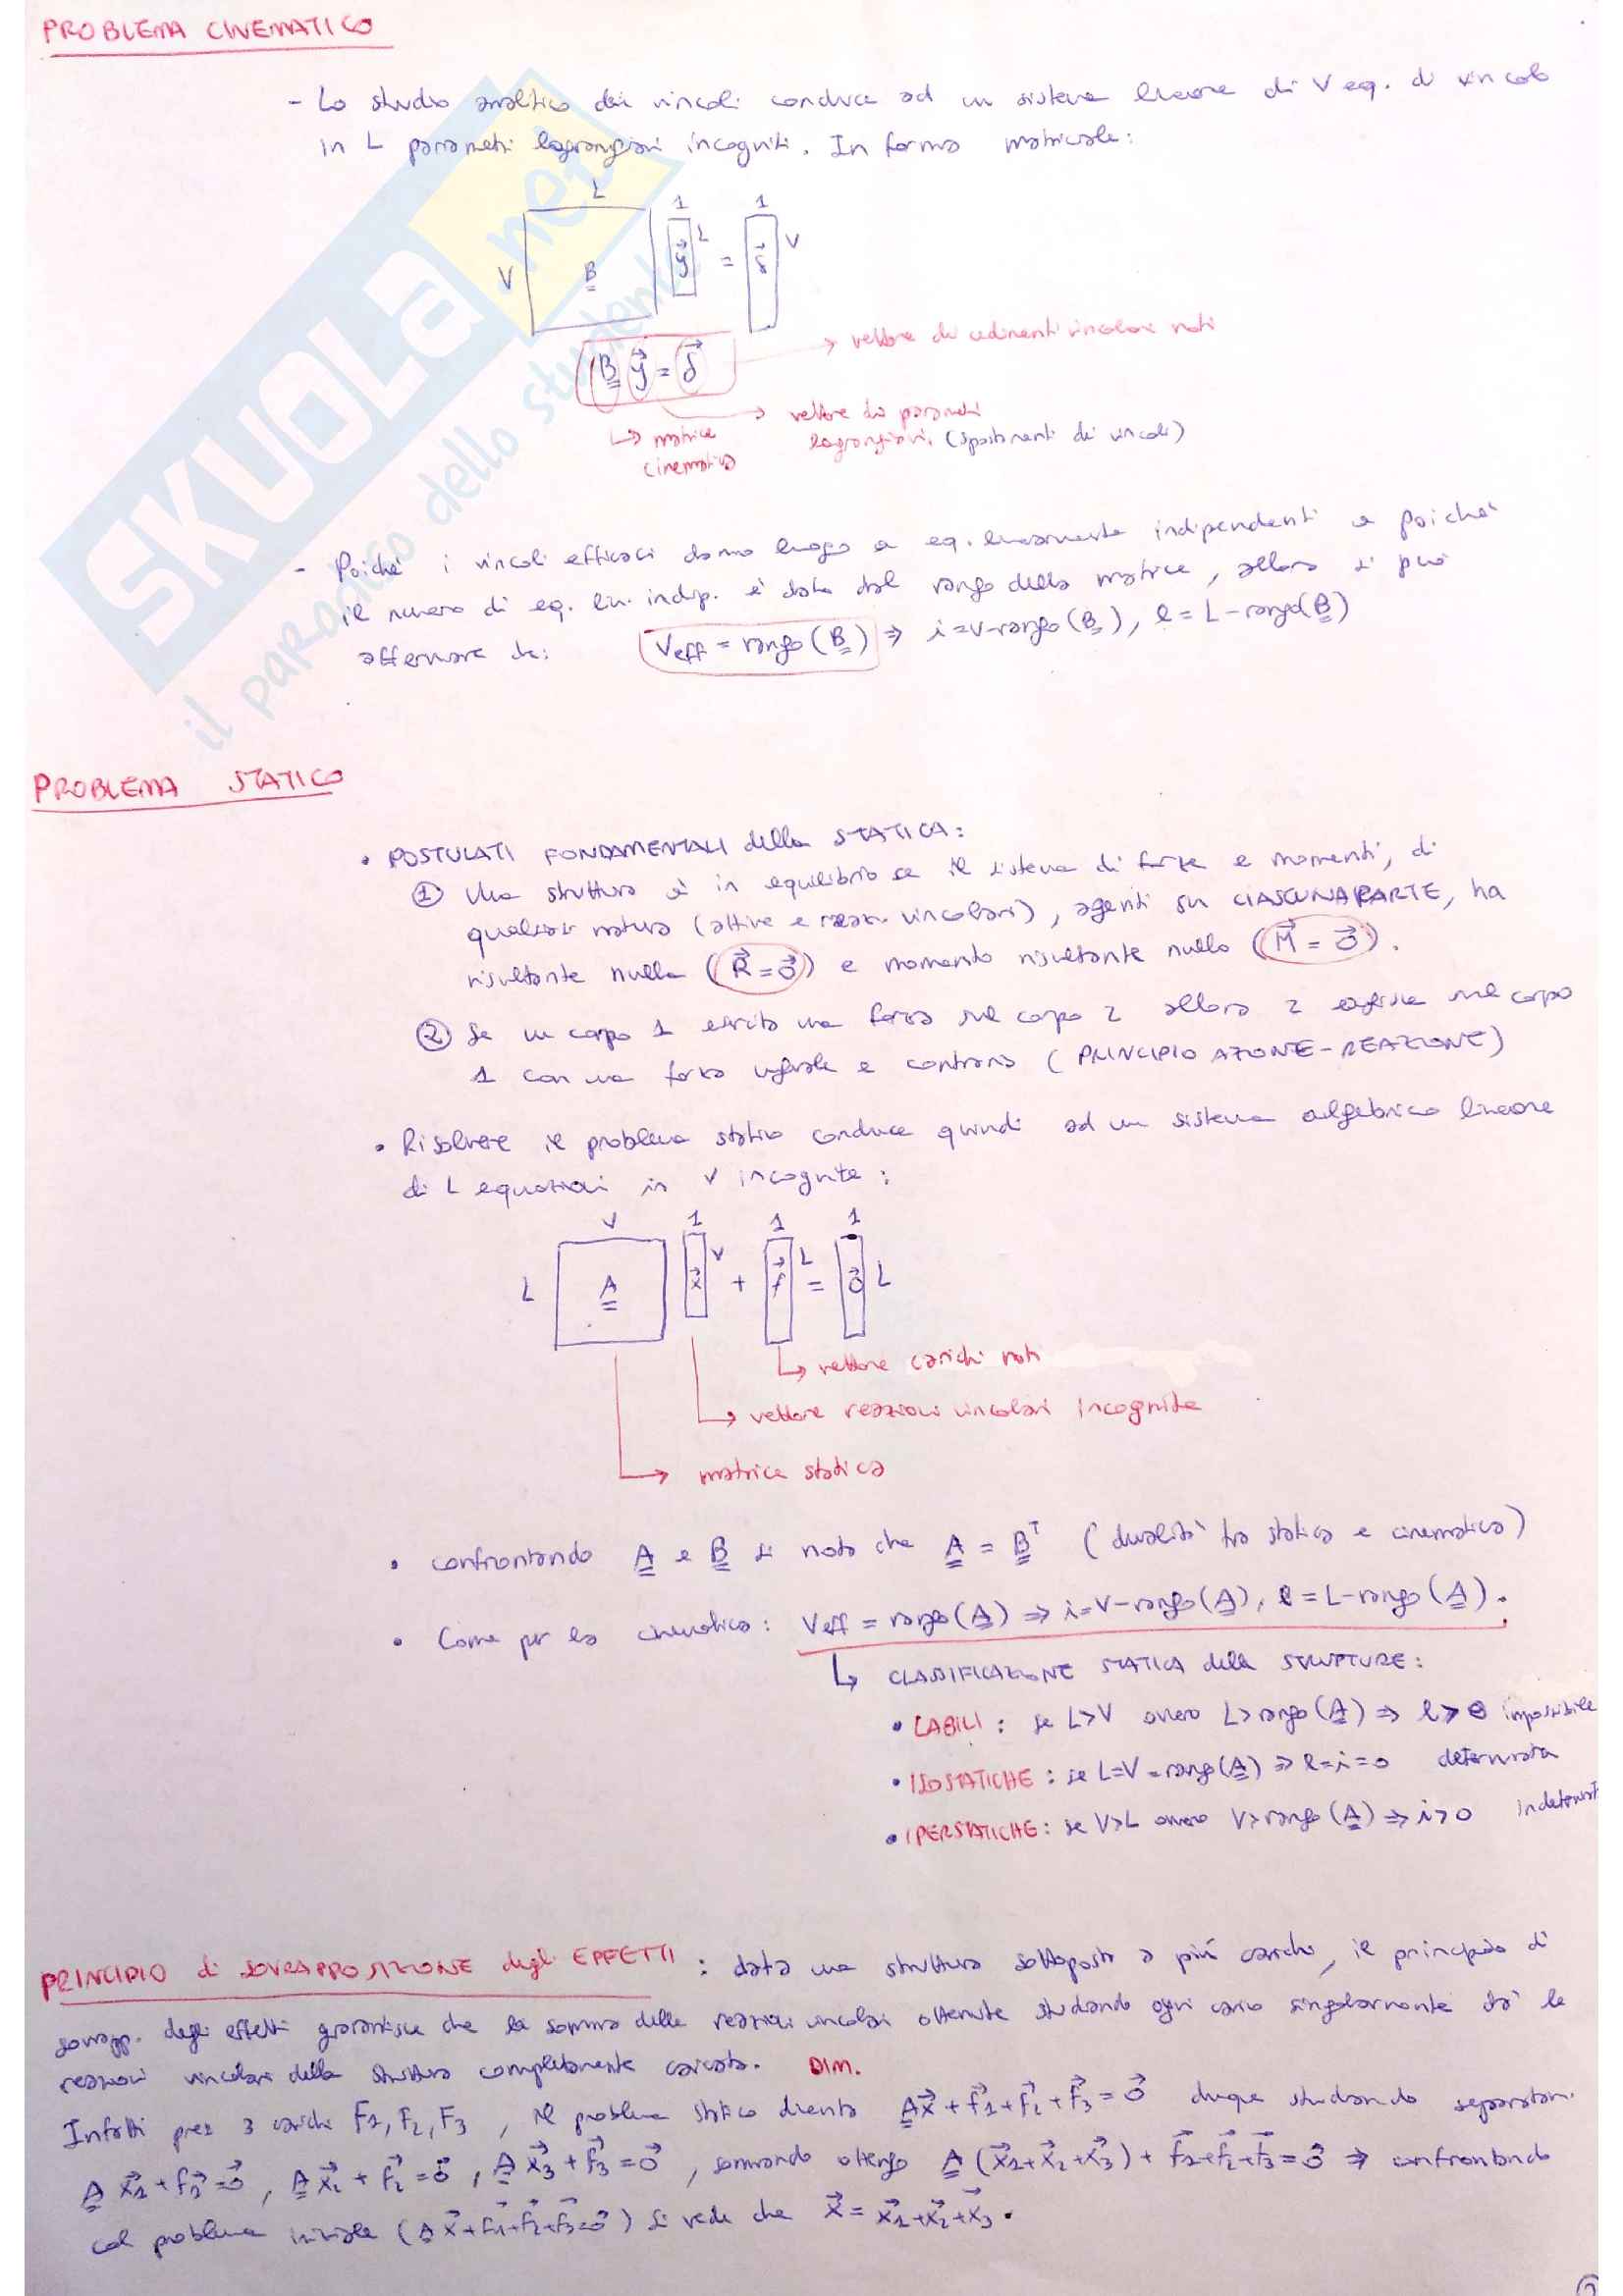 PROBLEMA CINEMATICO
- Lo studio analitico dei vincoli conduce ad un sistema lineare di V eq. di vincolo
in L parametri lagrangiani incogniti. In forma matriciale:
L 1 1
V B y⃗ L = δ⃗ V
B y⃗ = δ⃗
→ vettore dei cedimenti vincolari noti
→ vettore dei parametri
lagrangiani (spostamenti dei vincoli)
↳ matrice
cinematica
- Poiché i vincoli efficaci danno luogo a eq. linearmente indipendenti e poiché
il numero di eq. lin. indip. è dato dal rango della matrice, allora si può
affermare che: Veff = rango(B) ⇒ i=V-rango(B), l = L-rango(B)
PROBLEMA STATICO
• POSTULATI FONDAMENTALI della STATICA:
① Una struttura è in equilibrio se il sistema di forze e momenti, di
qualsiasi natura (attive e reaz. vincolari), agenti su CIASCUNA PARTE, ha
risultante nulla (R⃗=0⃗) e momento risultante nullo (M⃗=0⃗).
② Se un corpo 1 esercita una forza sul corpo 2 allora 2 sul corpo
1 con una forza uguale e contraria (PRINCIPIO AZIONE-REAZIONE)
• Risolvere il problema statico conduce quindi ad un sistema algebrico lineare
di L equazioni in V incognite:
V 1 1 1
L A x⃗ V + f⃗ L = 0⃗ L
↳ vettore carichi noti
↳ vettore reazioni vincolari incognite
↳ matrice statica
• confrontando A e B si nota che A = Bᵀ (dualità tra statica e cinematica)
• Come per la cinematica: Veff = rango(A) ⇒ i=V-rango(A), l=L-rango(A).
↳ CLASSIFICAZIONE STATICA delle STRUTTURE:
• LABILI: se L>V ovvero L>rango(A) ⇒ l>0 impossibile
• ISOSTATICHE: se L=V=rango(A) ⇒ l=i=0 determinata
• IPERSTATICHE: se V>L ovvero V>rango(A) ⇒ i>0
PRINCIPIO di SOVRAPPOSIZIONE degli EFFETTI: data una struttura sottoposta a più carichi, il principio di
sovrapp. degli effetti garantisce che la somma delle reazioni vincolari ottenute studiando ogni carico singolarmente dà le
reazioni vincolari della struttura completamente caricata. DIM.
Infatti presi 3 carichi F1, F2, F3, il problema statico diventa Ax⃗+f⃗1+f⃗2+f⃗3=0⃗ dunque studiando separatam.
A x⃗1+f⃗1=0⃗, A x⃗2+f⃗2=0⃗, A x⃗3+f⃗3=0⃗, sommando ottengo A(x⃗1+x⃗2+x⃗3)+f⃗1+f⃗2+f⃗3=0⃗ ⇒ confrontando
col problema iniziale (Ax⃗+f⃗1+f⃗2+f⃗3=0⃗) si vede che x⃗=x⃗1+x⃗2+x⃗3.
SKUOLA.net
il paradiso dello studente